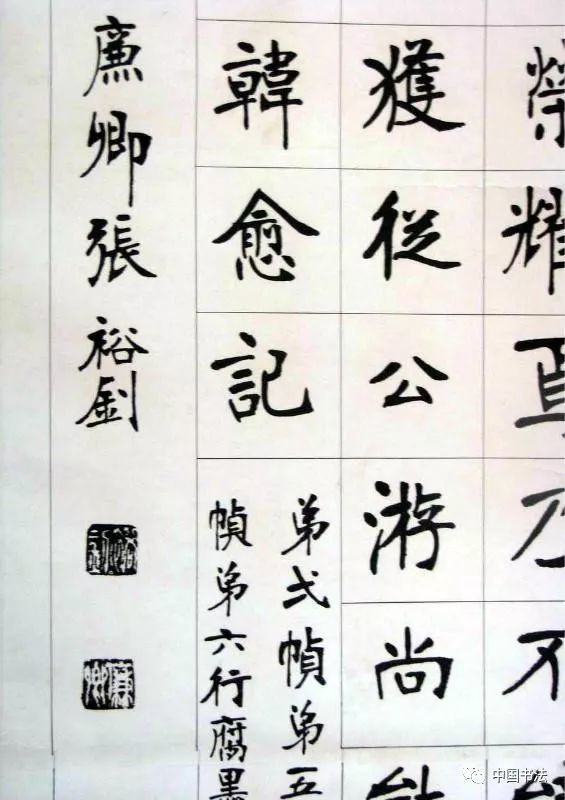 榮耀焉乃不
獲從公游尚
韓愈記
弟弍幀弟五
幀弟六行腐黑
廉卿張裕釗
中国书法